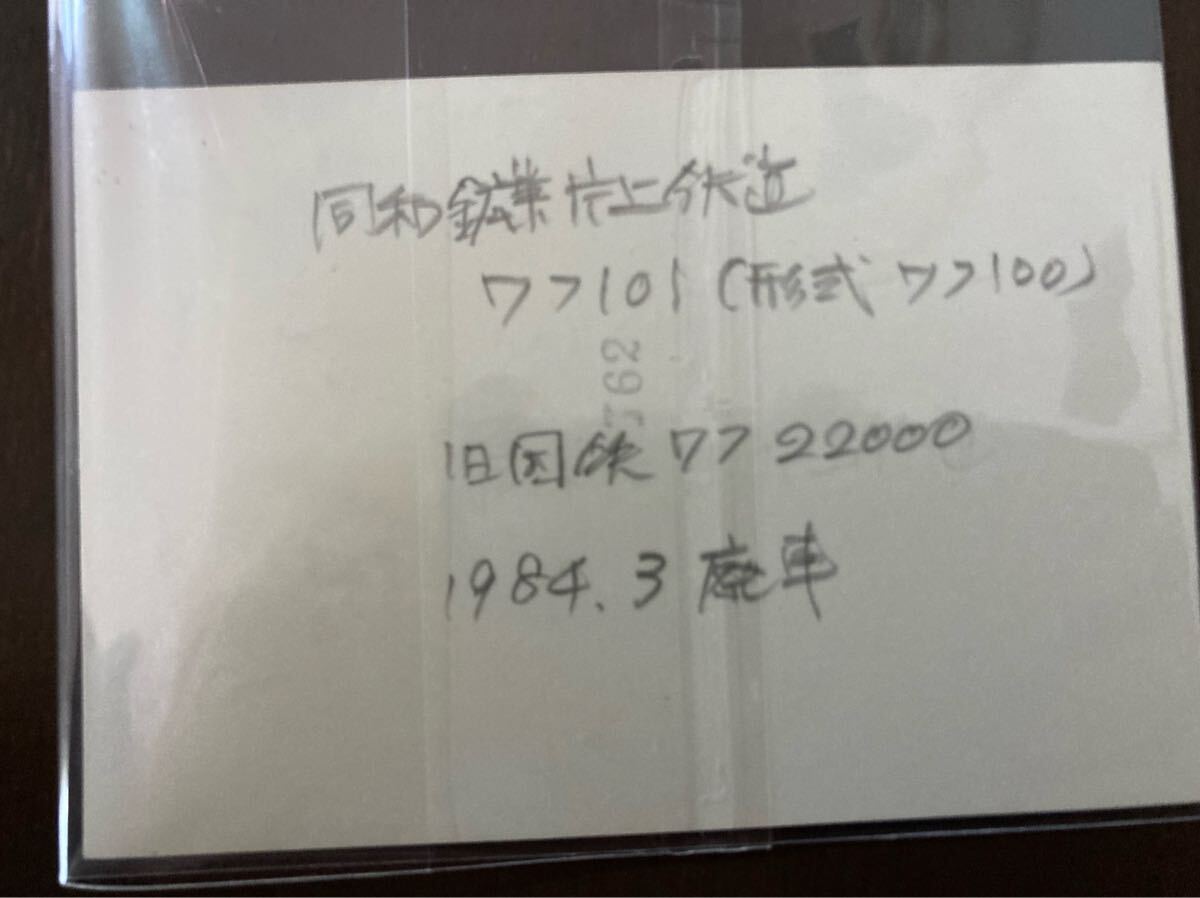 同和鉱業片上鉄道
ワフ101（形式 ワフ100）
J62
旧国鉄ワフ22000
1984.3 廃車